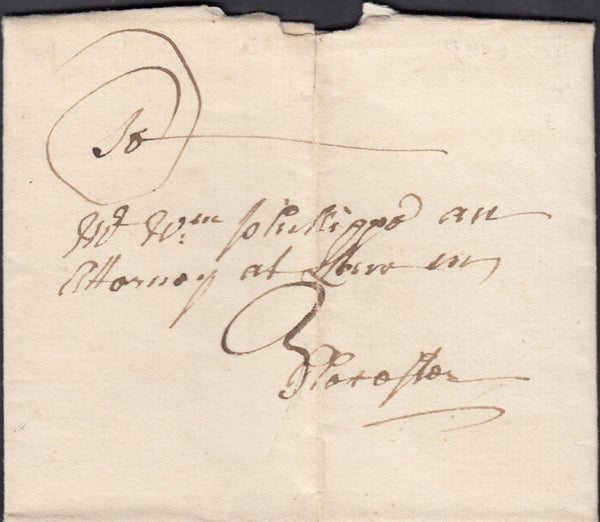 To
Mr Wm Phillipps an
Attorney at Law in
3
Glocester